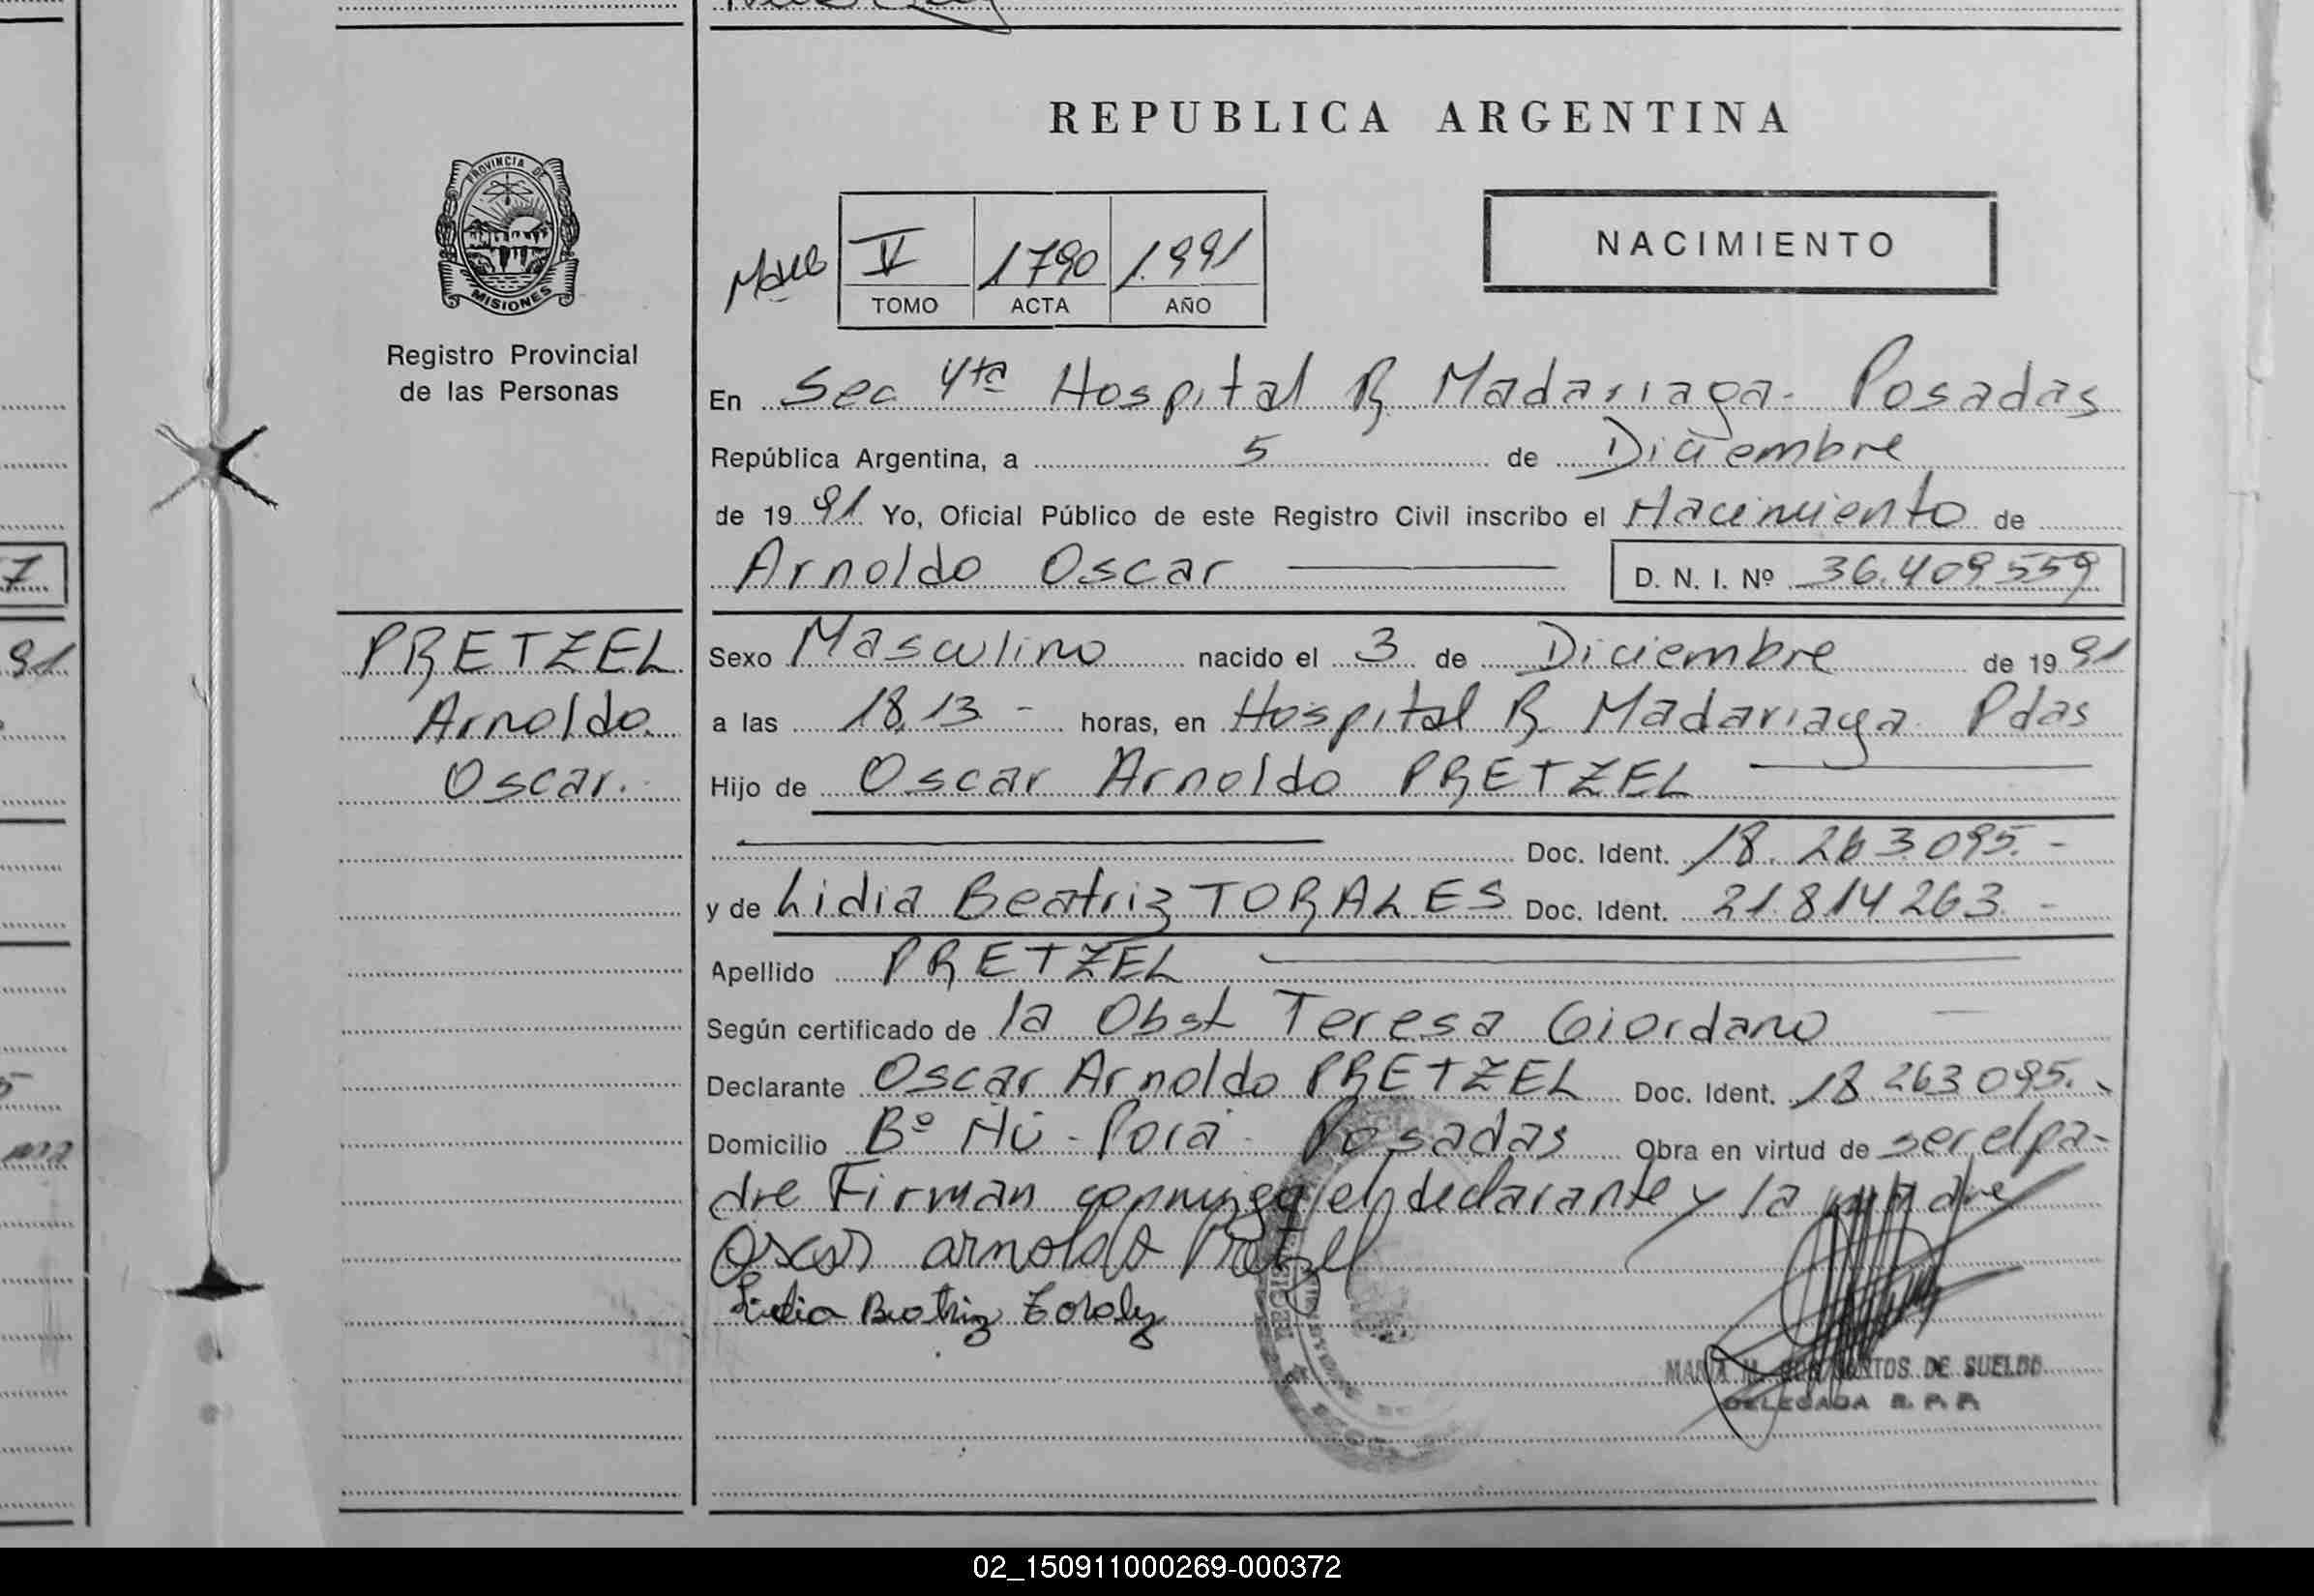 REPUBLICA ARGENTINA
PROVINCIA DE
MISIONES
Registro Provincial
de las Personas
V 1790 1.991
TOMO ACTA AÑO
NACIMIENTO
En Sec 4ta Hospital R Madariaga - Posadas
República Argentina, a 5 de Diciembre
de 1991 Yo, Oficial Público de este Registro Civil inscribo el Nacimiento de
Arnoldo Oscar D. N. I. Nº 36.409559
PRETZEL
Arnoldo.
Oscar.
Sexo Masculino nacido el 3 de Diciembre de 1991
a las 18,13 - horas, en Hospital R Madariaga Pdas
Hijo de Oscar Arnoldo PRETZEL
Doc. Ident. 18.263.095.-
y de Lidia Beatriz TORALES Doc. Ident. 21.814 263.-
Apellido PRETZEL
Según certificado de la Obst Teresa Giordano
Declarante Oscar Arnoldo PRETZEL Doc. Ident. 18 263 095.-
Domicilio Bº Ñú - Porá - Posadas Obra en virtud de ser el pa-
dre Firman conmigo el declarante y la madre
Oscar arnoldo Pretzel
Lidia Beatriz Torales
MARIA DE SUELDO
DELEGADA R. P. P.
7
91
5
02_150911000269-000372